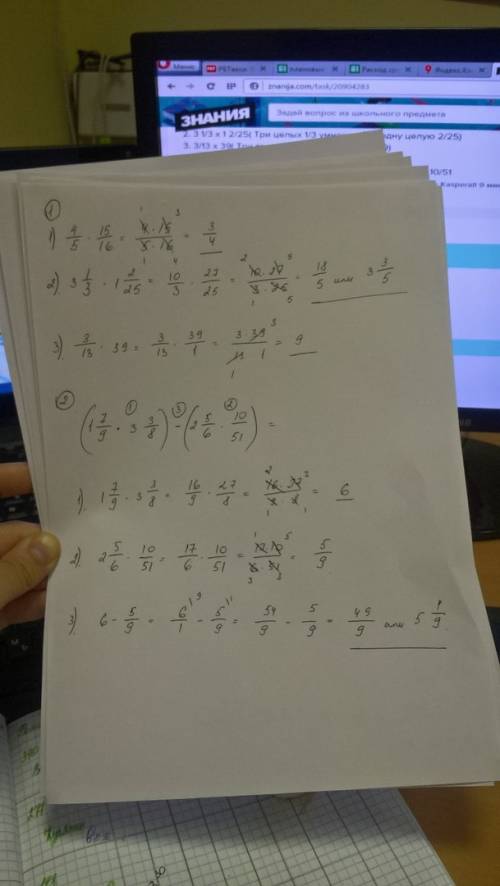 Меню
znanija.com/task/20904283
ЗНАНИЯ
Задай вопрос из школьного предмета
2. 3 1/3 x 1 2/25( Три целых 1/3
одну целую 2/25)
3. 3/13 x 39(
10/51
1
1) 4/5 · 15/16 = 4 · 15 / 5 · 16 = 3/4
2) 3 1/3 · 1 2/25 = 10/3 · 27/25 = 10 · 27 / 3 · 25 = 18/5 или 3 3/5
3) 3/13 · 39 = 3/13 · 39/1 = 3 · 39 / 13 · 1 = 9
2
(1 7/9 · 3 3/8) - (2 5/6 · 10/51) =
1) 1 7/9 · 3 3/8 = 16/9 · 27/8 = 16 · 27 / 9 · 8 = 6
2) 2 5/6 · 10/51 = 17/6 · 10/51 = 17 · 10 / 6 · 51 = 5/9
3) 6 - 5/9 = 6/1 - 5/9 = 54/9 - 5/9 = 49/9 или 5 4/9